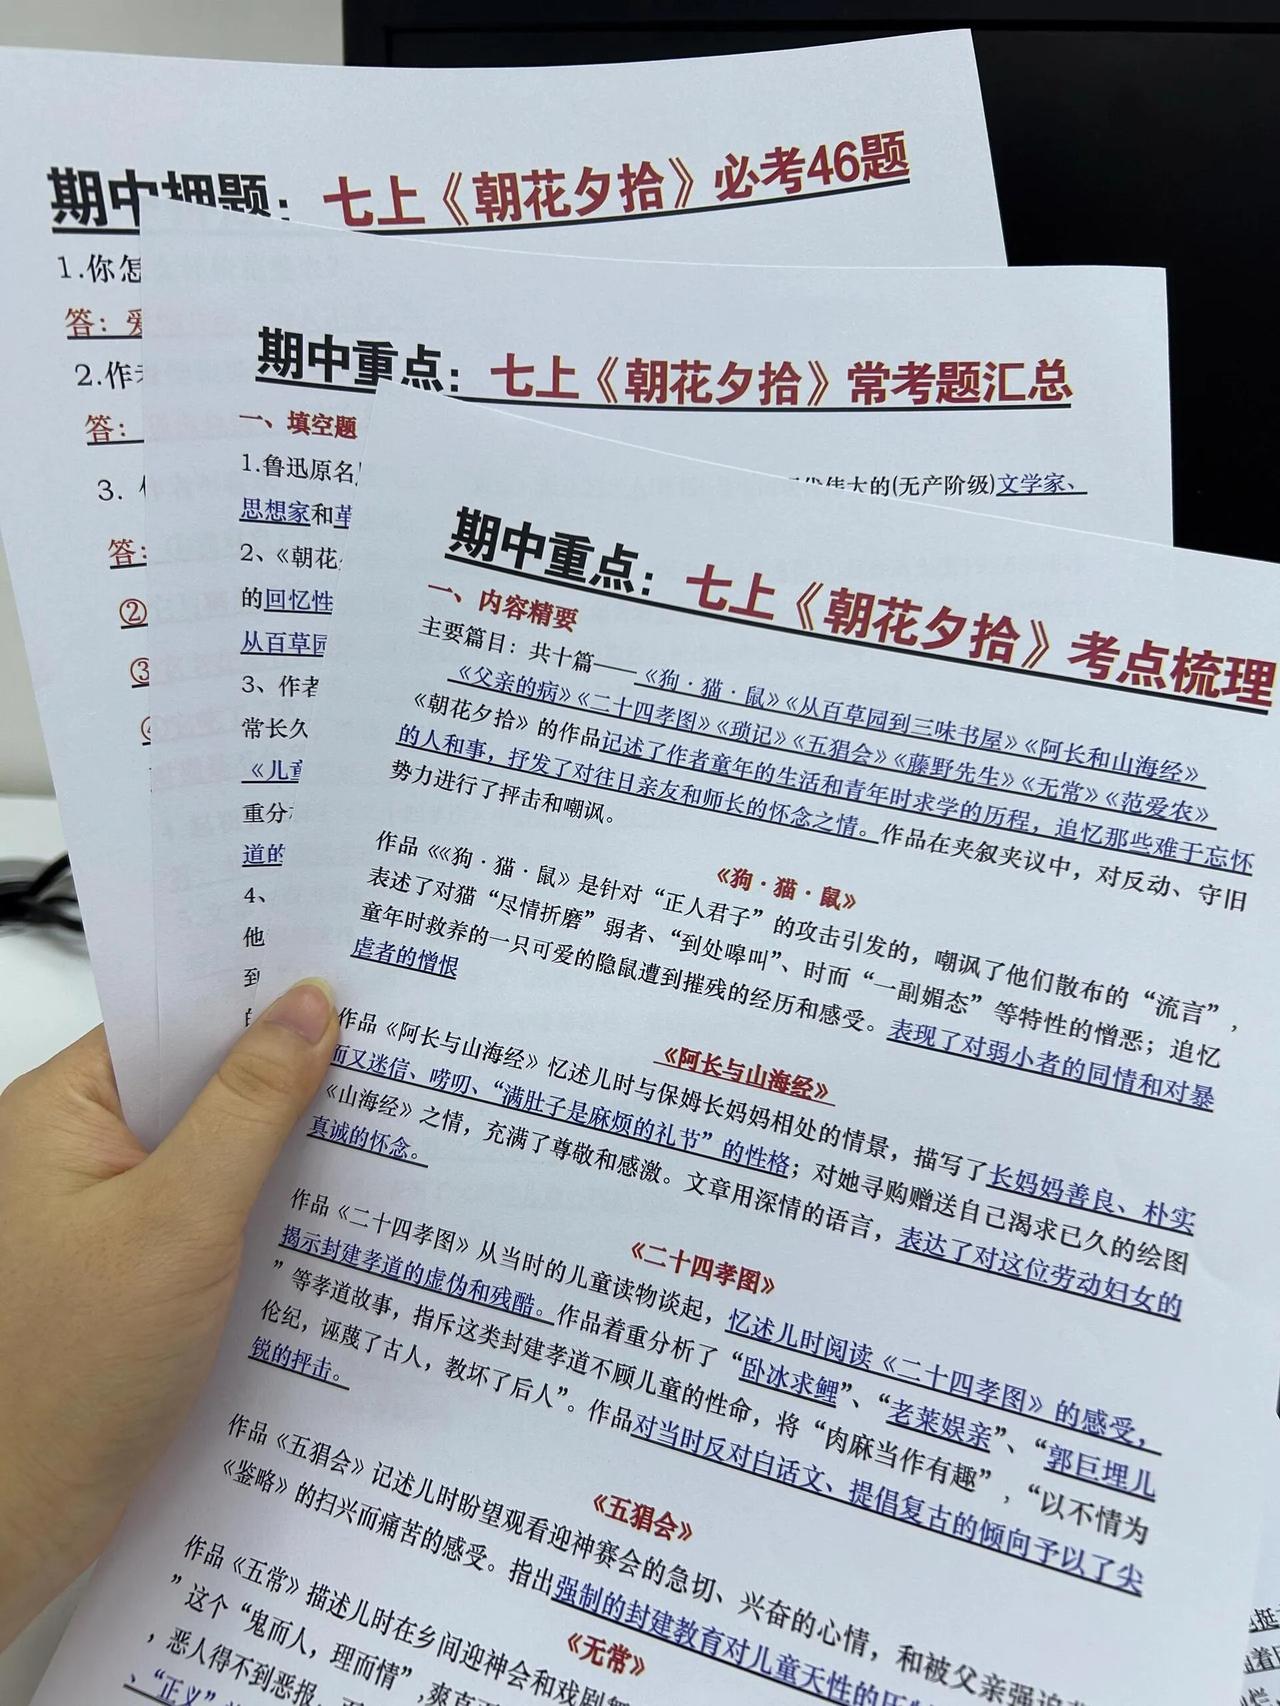 期中押题：七上《朝花夕拾》必考46题
1.你怎
答：爱
2.作者
答：
3.
答：
②
③
④
期中重点：七上《朝花夕拾》常考题汇总
一、填空题
1.鲁迅原名
代伟大的(无产阶级)文学家、
思想家和革
2、《朝花
的回忆性
从百草园
3、作者
常长久
《儿童
重分
道的
4、
他
到
的
期中重点：七上《朝花夕拾》考点梳理
一、内容精要
主要篇目：共十篇——《狗·猫·鼠》《从百草园到三味书屋》《阿长和山海经》
《父亲的病》《二十四孝图》《琐记》《五猖会》《藤野先生》《无常》《范爱农》
《朝花夕拾》的作品记述了作者童年的生活和青年时求学的历程，追忆那些难于忘怀
的人和事，抒发了对往日亲友和师长的怀念之情。作品在夹叙夹议中，对反动、守旧
势力进行了抨击和嘲讽。
《狗·猫·鼠》
作品《《狗·猫·鼠》是针对“正人君子”的攻击引发的，嘲讽了他们散布的“流言”，
表述了对猫“尽情折磨”弱者、“到处嗥叫”、时而“一副媚态”等特性的憎恶；追忆
童年时救养的一只可爱的隐鼠遭到摧残的经历和感受。表现了对弱小者的同情和对暴
虐者的憎恨
《阿长与山海经》
作品《阿长与山海经》忆述儿时与保姆长妈妈相处的情景，描写了长妈妈善良、朴实
而又迷信、唠叨、“满肚子是麻烦的礼节”的性格；对她寻购赠送自己渴求已久的绘图
《山海经》之情，充满了尊敬和感激。文章用深情的语言，表达了对这位劳动妇女的
真诚的怀念。
《二十四孝图》
作品《二十四孝图》从当时的儿童读物谈起，忆述儿时阅读《二十四孝图》的感受，
揭示封建孝道的虚伪和残酷。作品着重分析了“卧冰求鲤”、“老莱娱亲”、“郭巨埋儿
”等孝道故事，指斥这类封建孝道不顾儿童的性命，将“肉麻当作有趣”，“以不情为
伦纪，诬蔑了古人，教坏了后人”。作品对当时反对白话文、提倡复古的倾向予以了尖
锐的抨击。
《五猖会》
作品《五猖会》记述儿时盼望观看迎神赛会的急切、兴奋的心情，和被父亲强迫
《鉴略》的扫兴而痛苦的感受。指出强制的封建教育对儿童天性的压制
《无常》
作品《五常》描述儿时在乡间迎神会和戏剧
”这个“鬼而人，理而情”,爽直
，恶人得不到恶报，
、“正义”